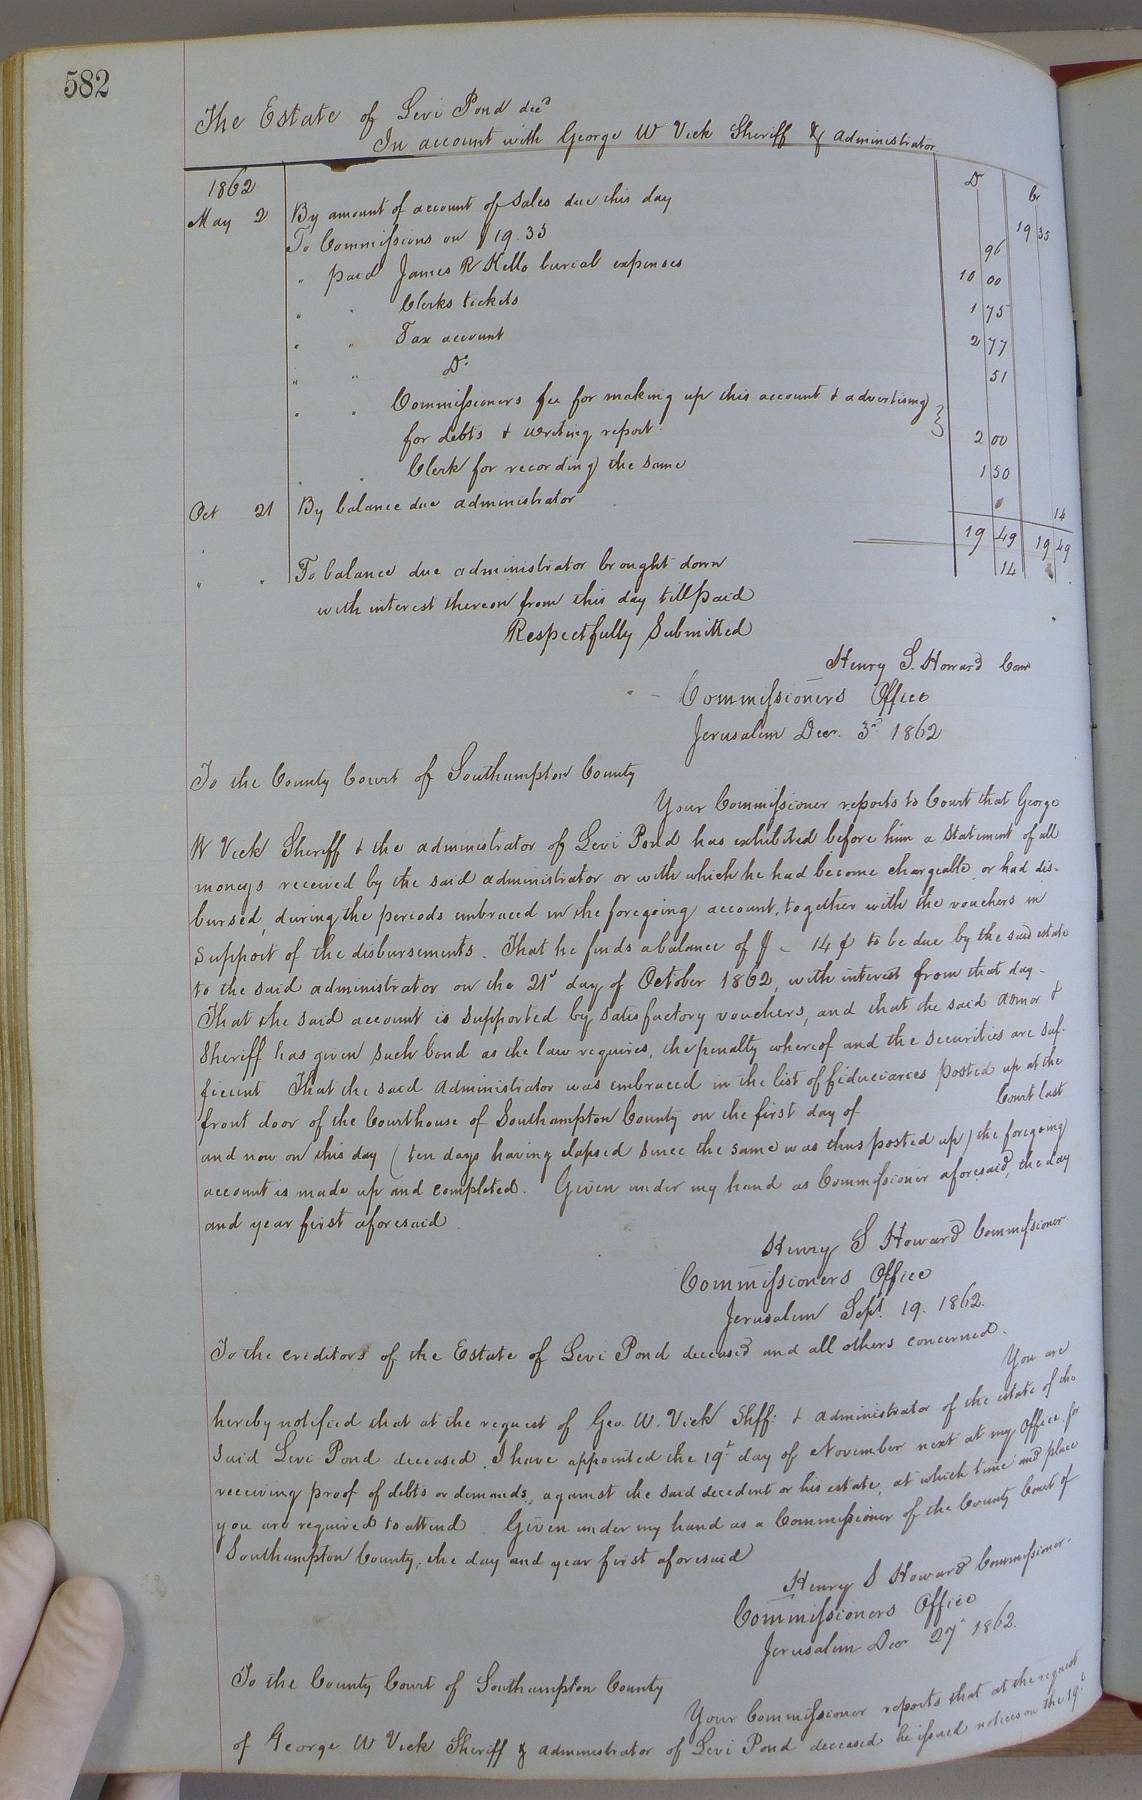 582
The Estate of Levi Pond decd
In account with George W Vick Sheriff & administrator
Dr Cr
1862
May 2 By amount of account of Sales due this day 19 35
To Commissions on $19.35 96
" paid James R Kello burial expenses 10 00
" " Clerks tickets 1 75
" " Tax account 2 77
" " Do 51
" " Commissioners fee for making up this account & advertising
for debts & writing report 2 00
" " Clerk for recording the same 1 50
Oct 21 By balance due administrator 14
19 49 19 49
" " To balance due administrator brought down 14
with interest thereon from this day till paid
Respectfully Submitted
Henry S. Howard Comr
Commissioners Office
Jerusalem Decr. 3d 1862
To the County Court of Southampton County
Your Commissioner reports to Court that George
W Vick Sheriff & the administrator of Levi Pond has exhibited before him a Statement of all
moneys received by the said administrator or with which he had become chargeable or had dis-
bursed, during the periods embraced in the foregoing account, together with the vouchers in
Support of the disbursements. That he finds a balance of $ - 14 ¢ to be due by the said estate
to the said administrator on the 21st day of October 1862, with interest from that day -
That the said account is supported by satisfactory vouchers, and that the said admor &
Sheriff has given such bond as the law requires, the penalty whereof and the securities are suf-
ficient That the said Administrator was embraced in the list of fiduciaries posted up at the
front door of the Courthouse of Southampton County on the first day of Court last
and now on this day (ten days having elapsed since the same was thus posted up) the foregoing
account is made up and completed. Given under my hand as Commissioner aforesaid, the day
and year first aforesaid.
Henry S Howard Commissioner
Commissioners Office
Jerusalem Sept. 19. 1862.
To the creditors of the Estate of Levi Pond deceased and all others concerned.
You are
hereby notified that at the request of Geo. W. Vick Shff: & administrator of the estate of the
Said Levi Pond deceased, I have appointed the 19th day of November next at my Office for
receiving proof of debts or demands, against the said decedent or his estate, at which time and place
you are required to attend. Given under my hand as a Commissioner of the County Court of
Southampton County, the day and year first aforesaid
Henry S Howard Commissioner.
Commissioners Office
Jerusalem Decr 27 1862.
To the County Court of Southampton County
Your Commissioner reports that at the request
of George W Vick Sheriff & administrator of Levi Pond deceased he issued notices on the 19th